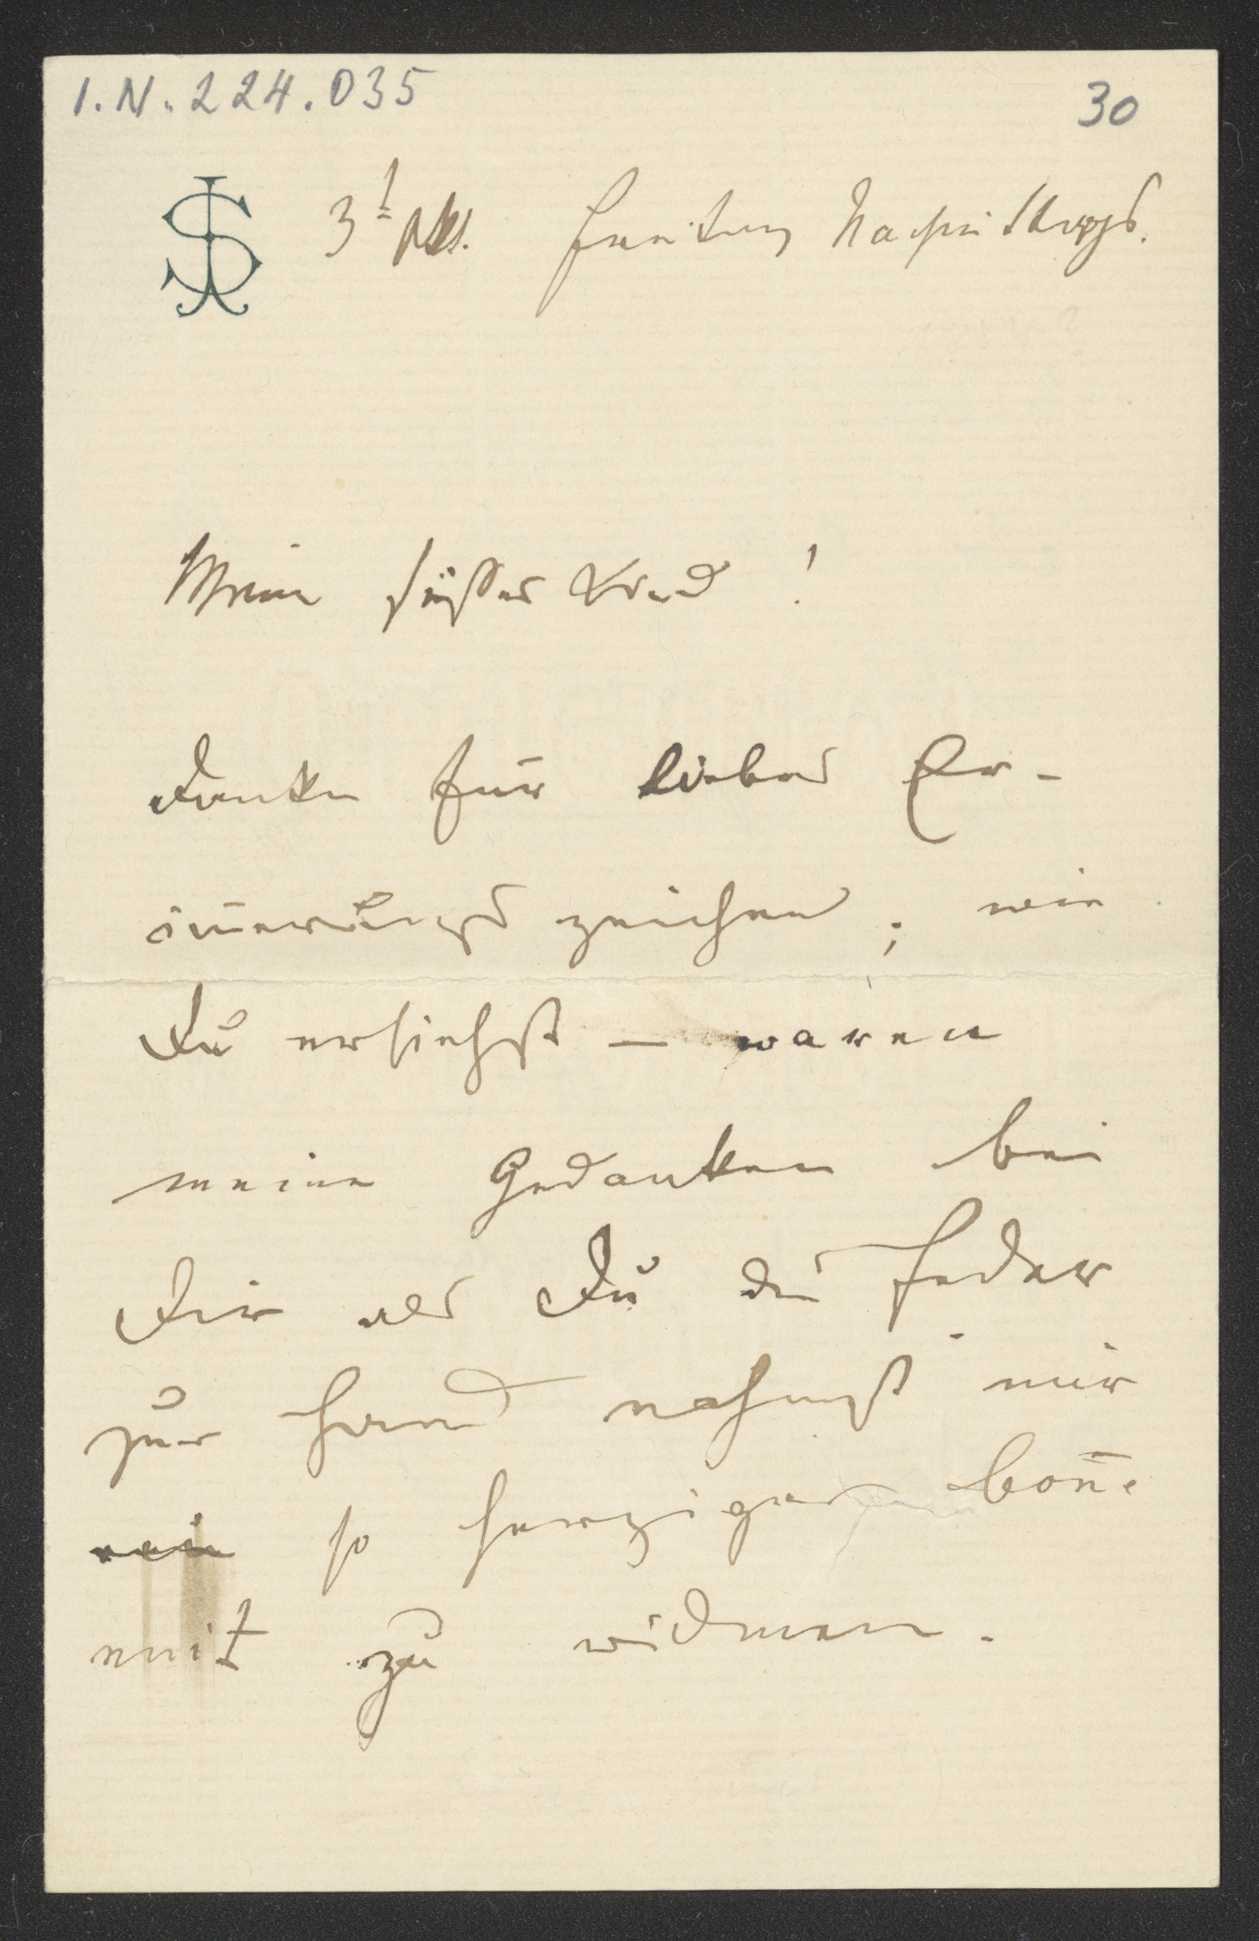 I.N. 224.035
30
JS 3 1 Freitag Nachmittags.
Mein süßes Kind !
Danke für liebes Er-
innerungszeichen ; wie
Du ersiehst — waren
meine Gedanken bei
Dir als Du die Feder
zur Hand nahmst mir
so herzigen
mit zu widmen .